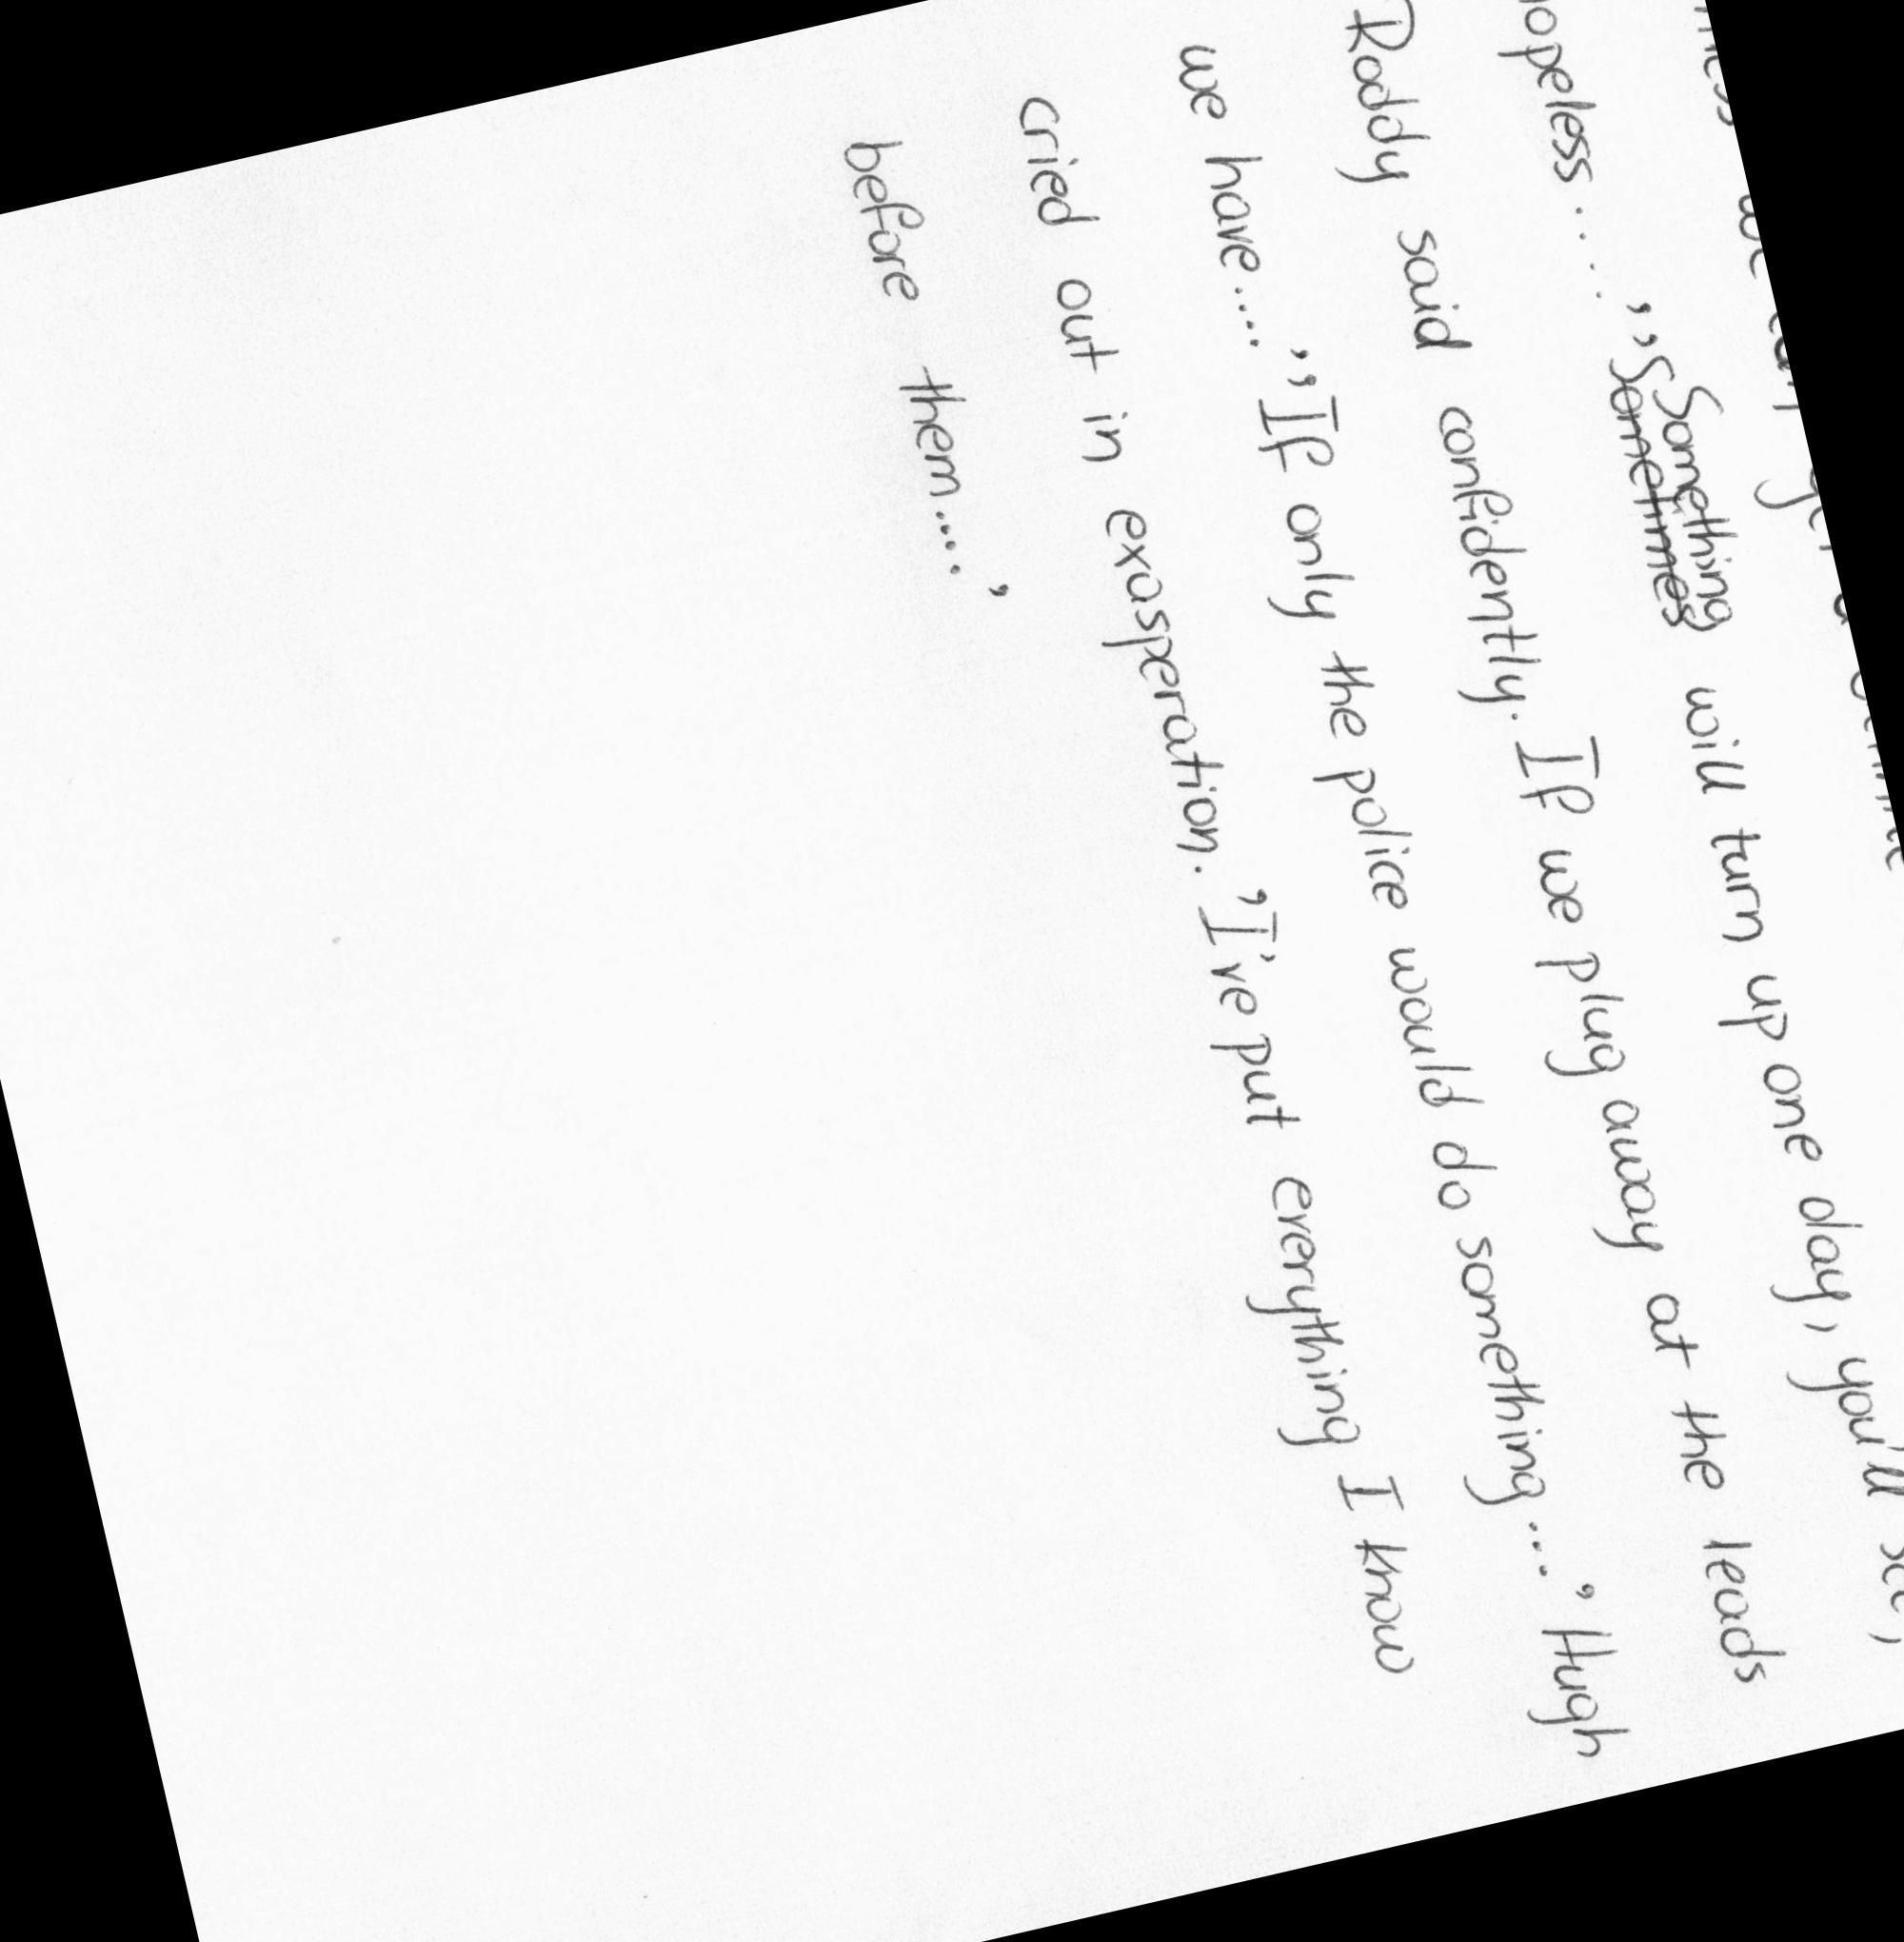 hopeless....' 'Something will turn up one day, you'll see,
Roddy said confidently. If we plug away at the leads
we have....' 'If only the police would do something...' Hugh
cried out in exasperation. 'I've put everything I know
before them....'